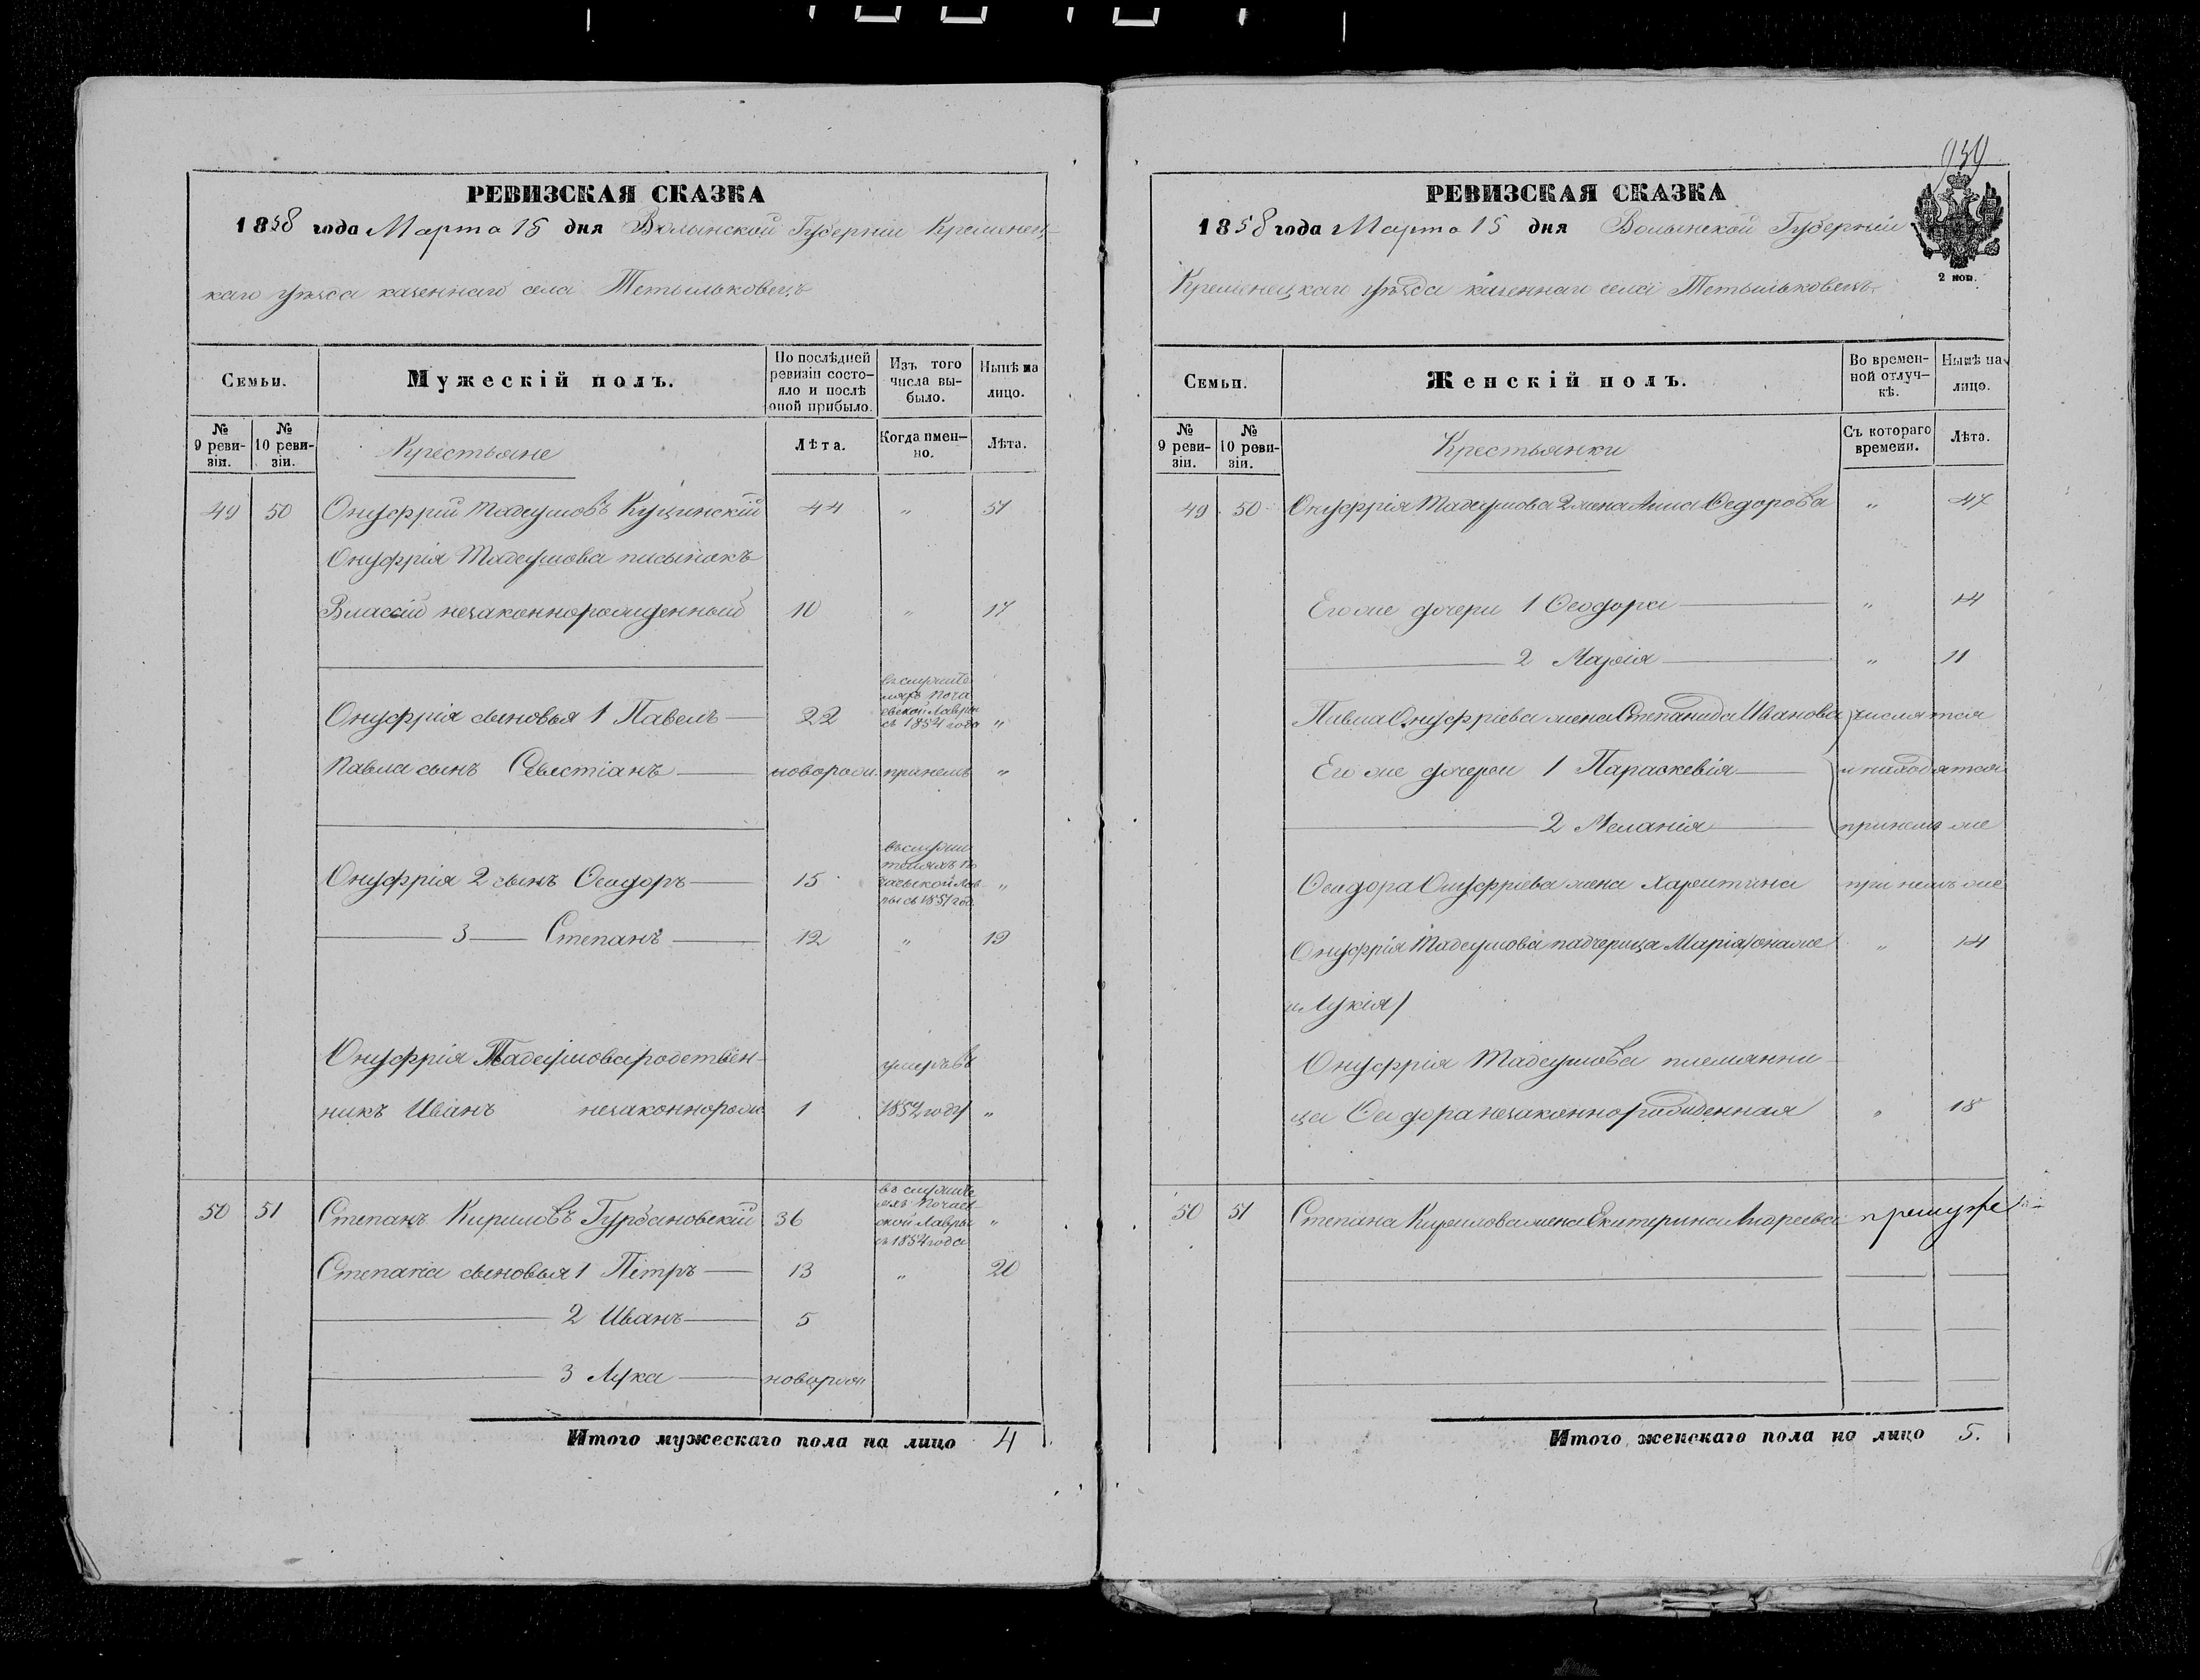 РЕВИЗСКАЯ СКАЗКА
1858 года Марта 15 дня Волынской Губерніи Кременец-
каго уѣзда казеннаго села Тетыльковецъ
Семьи.
Мужескій полъ.
По послѣдней ревизіи состо-яло и послѣ оной прибыло.
Изъ того числа вы-было.
Нынѣ на лицо.
№ 9 реви-зіи.
№ 10 реви-зіи.
Крестьяне
Лѣта.
Когда имен-но.
Лѣта.
49 50 Онуфрій Тадеушовъ Кущинскій 44 " 51
Онуфрія Тадеушова пасынокъ
Власій незаконнорожденный 10 " 17
Онуфрія сыновья 1 Павелъ 22 въ служите ляхъ Поча евской Лавры съ 1854 года "
Павла сынъ Севастіанъ новорож. при немъ "
Онуфрія 2 сынъ Ѳеодоръ 15 въ служи теляхъ По чаевской Лав ры съ 1851 год. "
3 Степанъ 12 " 19
Онуфрія Тадеушова родствен-
никъ Иванъ незаконнорож. 1 умеръ въ 1852 году "
50 51 Степанъ Кириловъ Гурбановскій 36 въ служите ляхъ Почаев ской Лавры съ 1854 года "
Степана сыновья 1 Пётръ 13 " 20
2 Иванъ 5
3 Лука новорож
Итого мужескаго пола на лицо 4
939
РЕВИЗСКАЯ СКАЗКА
1858 года Марта 15 дня Волынской Губерніи
Кременецкаго уѣзда казеннаго села Тетыльковецъ
2 коп.
Семьи.
Женскій полъ.
Во времен-ной отлуч-кѣ.
Нынѣ на лицо.
№ 9 реви-зіи.
№ 10 реви-зіи.
Крестьянки
Съ котораго времени.
Лѣта.
49 50 Онуфрія Тадеушова 2 жена Анна Ѳедорова " 47
Его же дочери 1 Ѳеодора " 14
2 Марія " 11
Павла Онуфріева жена Степанида Иванова числятся
Его же дочери 1 Параскевія и находятся
2 Меланія при немъ же
Ѳеодора Онуфріева жена Харитина при немъ же
Онуфрія Тадеушова падчерица Марія /она же " 14
и Лукія/
Онуфрія Тадеушова племянни-
ца Ѳеодора незаконнорожденная " 18
50 51 Степана Кирилова жена Екатерина Андреева при муже
Итого женскаго пола на лицо 5.